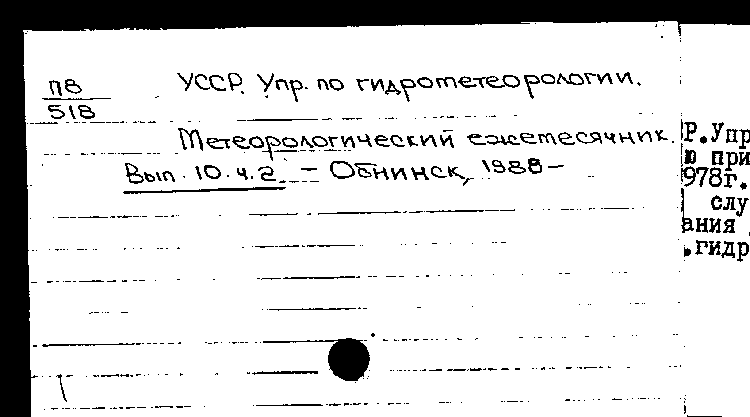 П8
518
УССР. Упр. по гидрометеорологии.
Метеорологический ежемесячник.
Вып. 10. ч. 2. – Обнинск, 1988–
Р.Упр
ю при
978г.
слу
ания
.гидр